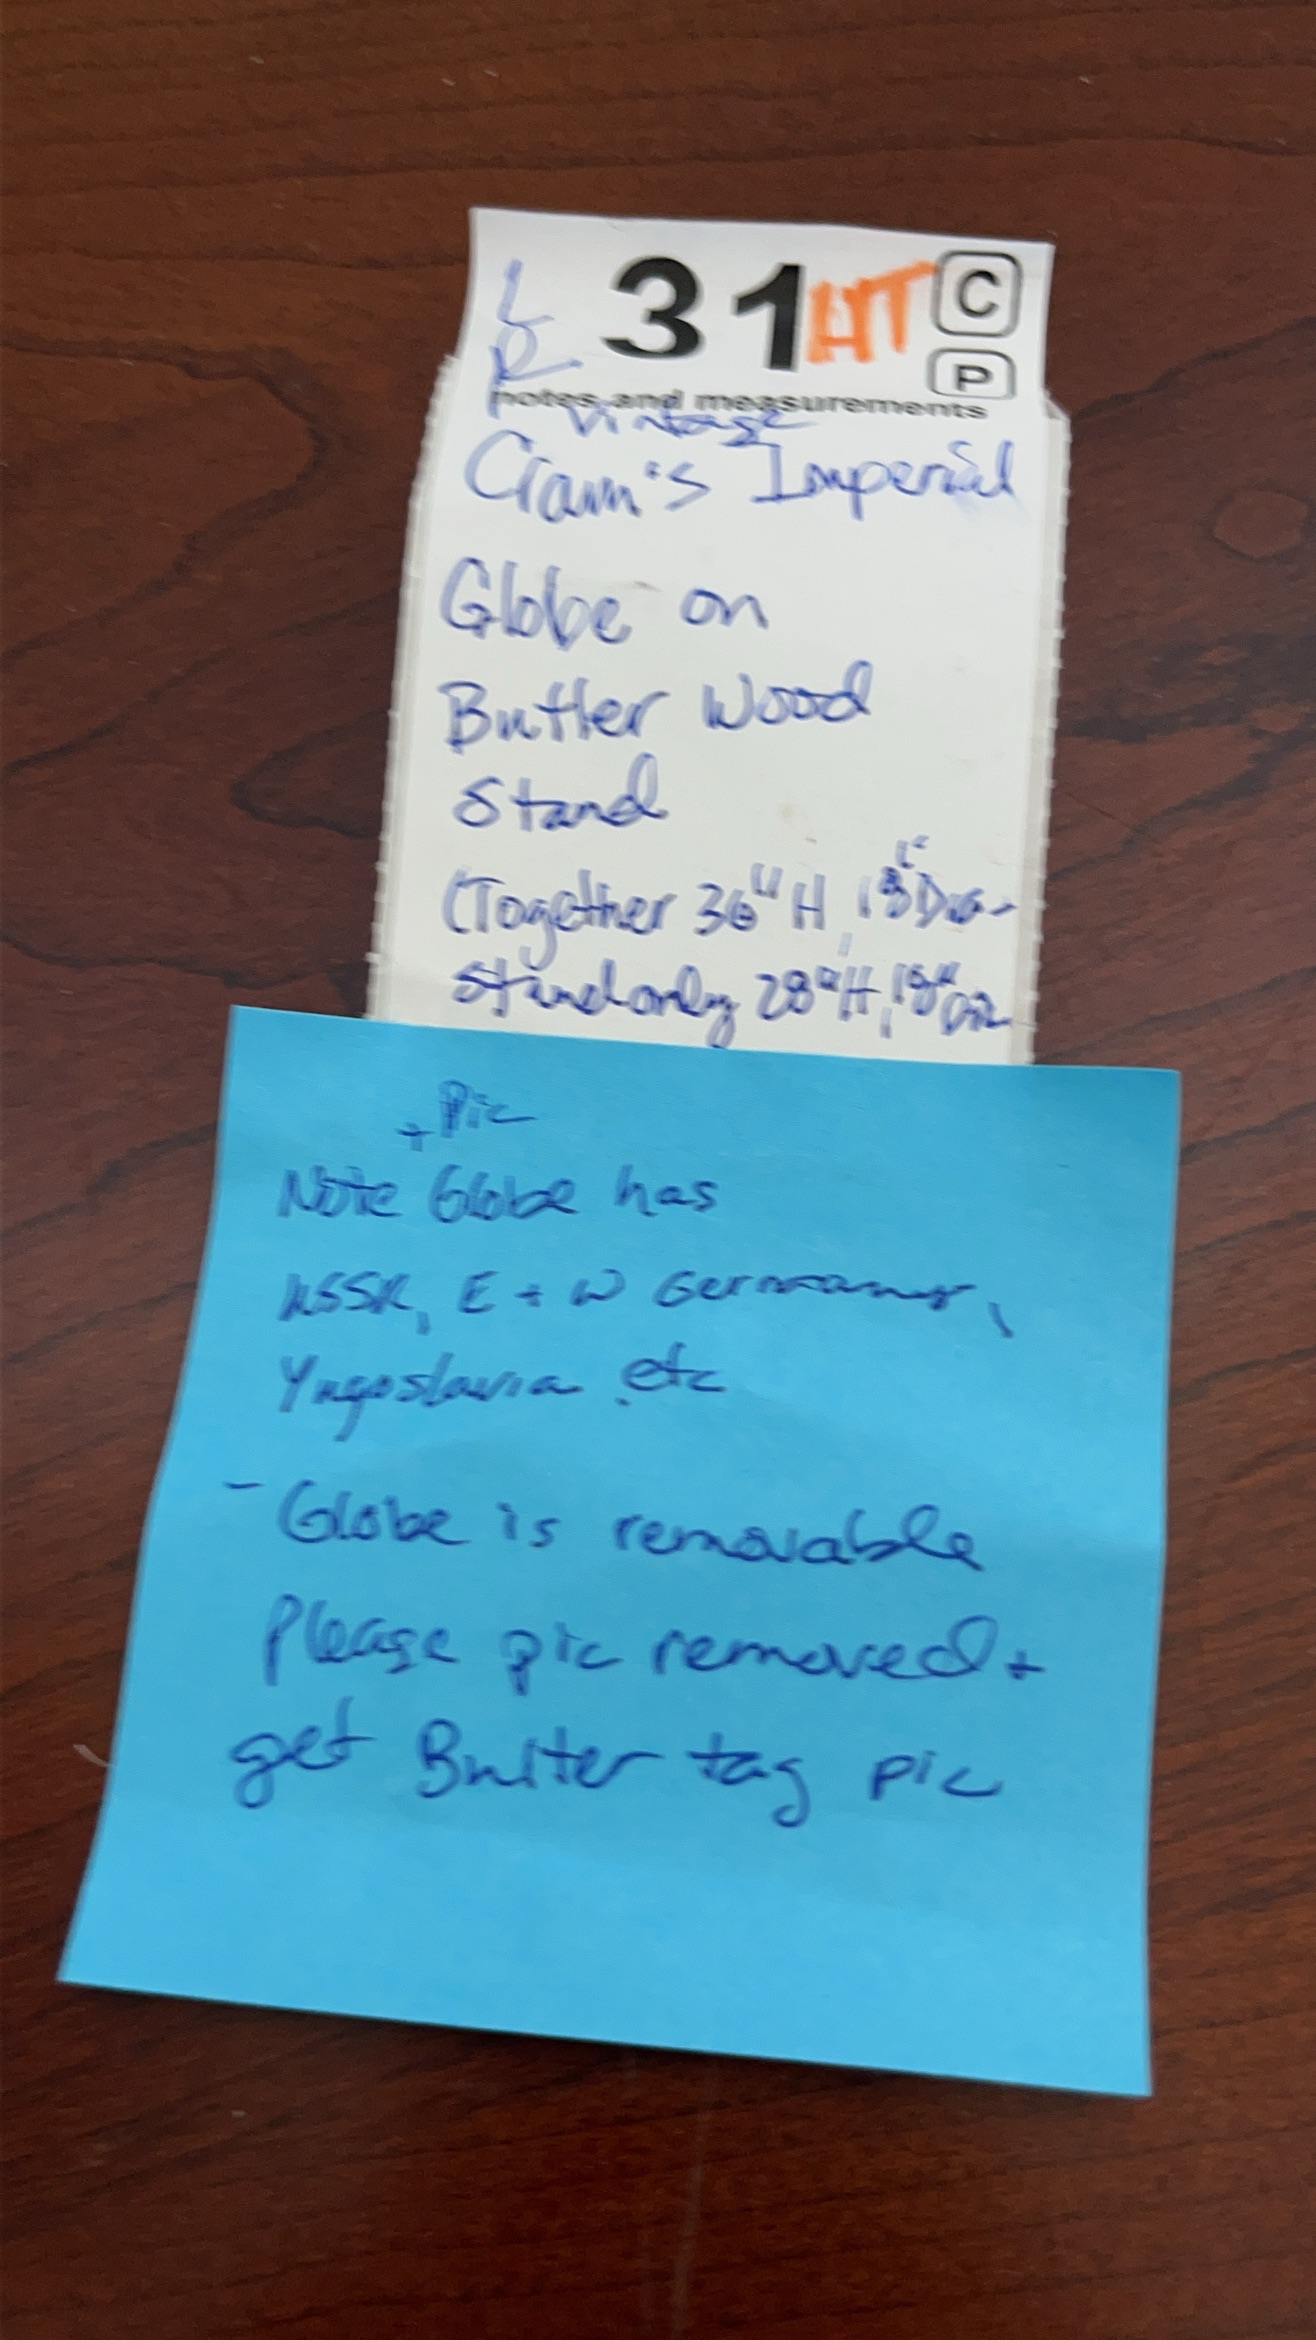 LR 31 HT C
P
notes and measurements
Vintage
Cram's Imperial
Globe on
Butler Wood
Stand
(Together 36" H, 18" Dia-
Stand only 28" H, 18" Dia
+ Pic
Note Globe has
USSR, E + W Germany,
Yugoslavia etc
- Globe is removable
Please pic removed +
get Butler tag pic